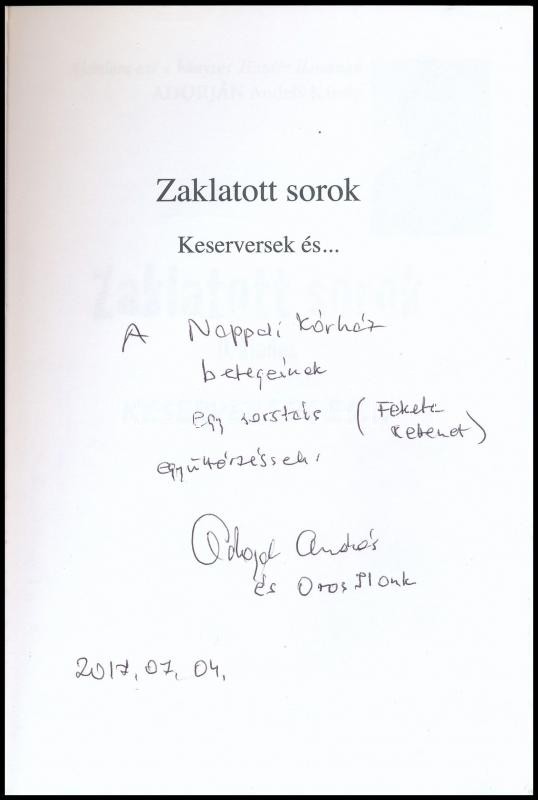 Zaklatott sorok
Keserversek és...
A Nappali Kórház
betegeinek
egy sorstárs (Fekete
együttérzéssel,
András
és Oros Ilonk
2017. 07. 04.